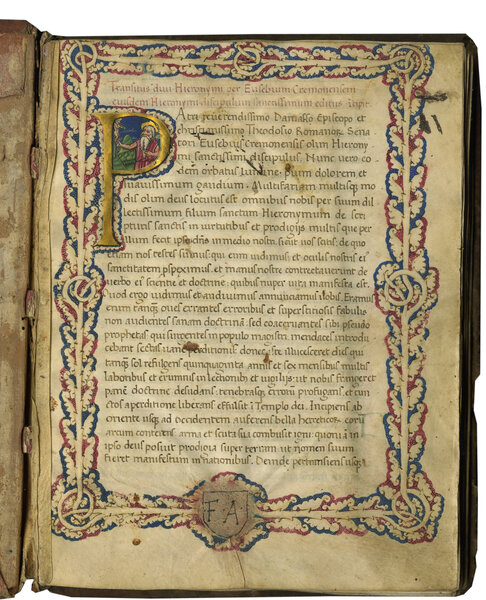 Transitus diui Hieronymi per Eusebium Cremonensem
eiusdem Hieronymi discipulum sanctissimum editus Incipit
PAtri reuerendissimo Damasso Episcopo et
christianissimo Theodosio Romanorum Sena
tori Eusebius Cremonensis olim Hierony
mi sanctissimi discipulus. Nunc uero eo
dem orbatus lumine pium dolorem et
suauissimum gaudium. Multifariam multisque mo
dis olim deus locutus est omnibus nobis per suum di
lectissimum filium sanctum Hieronymum de scri
pturis sanctis in uirtutibus et prodigijs multis que per
illum fecit ipse deus in medio nostri sicut uos scitis: de quo
etiam nos testes sumus: qui eum uidimus et oculis nostris eius
sanctitatem perspeximus et manus nostre contrectauerunt de
uerbo eius scientie et doctrine: quibus nuper uita manifesta est.
quod ergo uidimus et audiuimus annunciamus uobis. Eramus
enim tanquam oues errantes erroribus et superstitiosis fabulis
non audientes sanam doctrinam: sed coaceruantes sibi pseudo
prophetas qui surgentes in populo magistri mendaces introdu
cebant sectas uiane perditionis donec illucesceret dies qui
tanquam sol refulgens quinquaginta annis et sex mensibus multis
laboribus et erumnis in lectionibus et uigilijs: ut nobis frangeret
panem doctrine desudans: tenebrasque errorum profugans: et cun
ctos a perditione liberans effulsit in Templo dei. Incipiens ab
oriente usque ad occidentem auferens bella hereticorum
arcum conterens arma et scuta sua combusit igni: quoniam in
ipso deus posuit prodigia super terram ut nomen suum
fieret manifestum in nationibus. Deinde pertransiens usque
F A